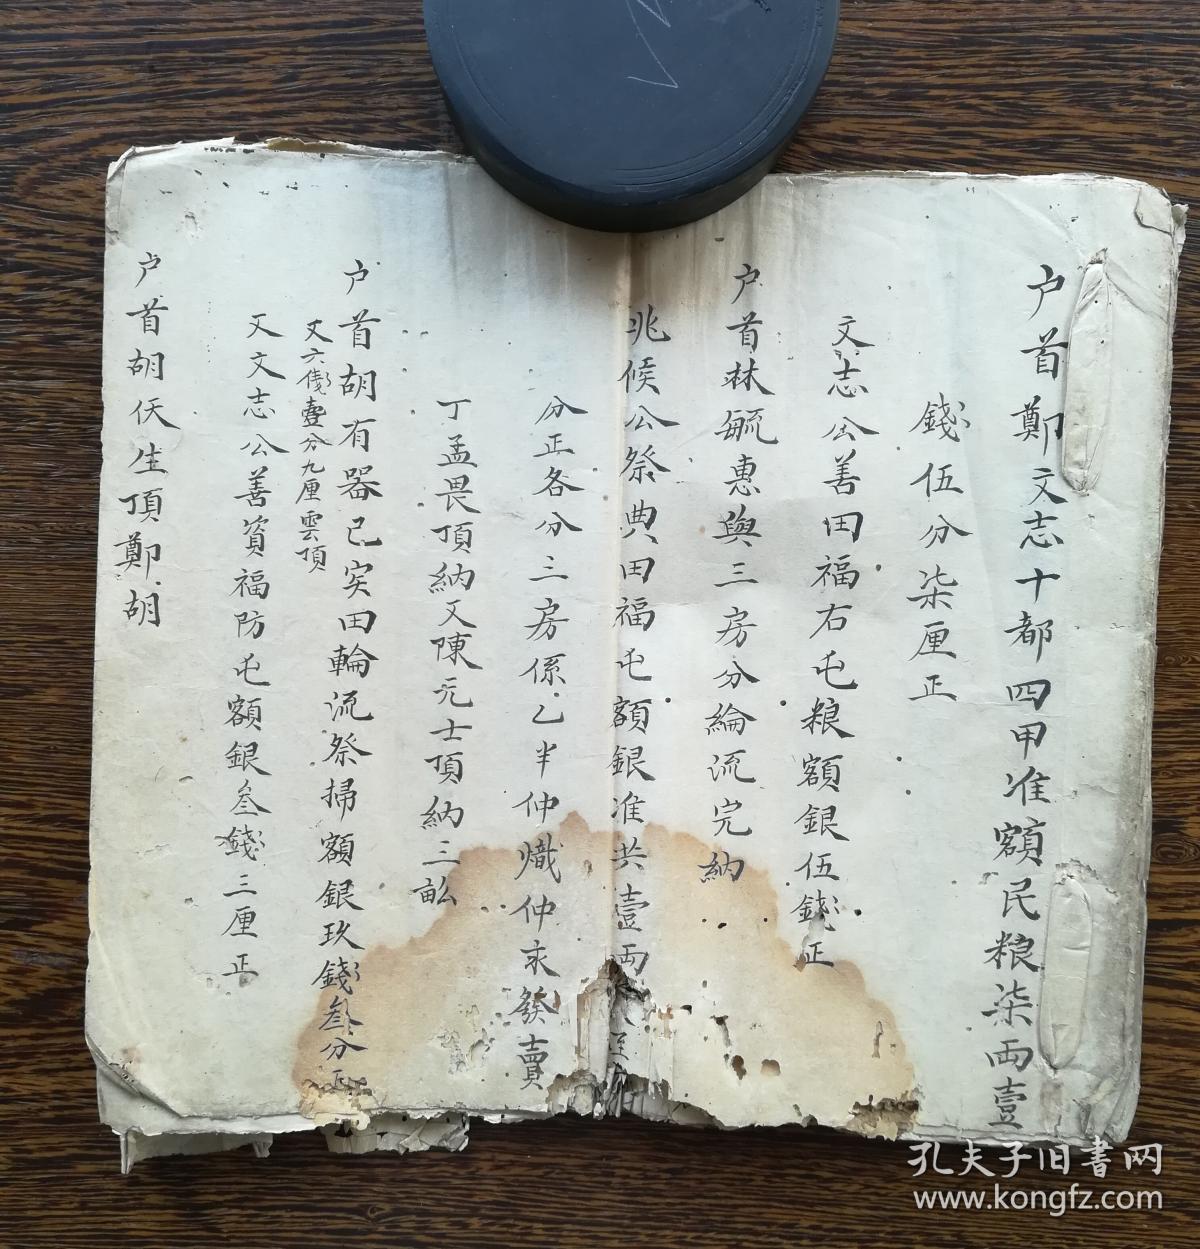 户首鄭文志十都四甲准額民粮柒両壹
錢伍分柒厘正
文志公善田福右屯粮額銀伍錢正
户首林毓惠與三房分綸流完納
兆候公祭典田福屯額銀准共壹両
分正各分三房係乙半仲熾仲求發賣
丁孟畏頂納又陳元士頂納三畝
户首胡有器已実田輪流祭掃額銀玖錢叁分正
又六錢壹分九厘雲頂
又文志公善資福防屯額銀叁錢三厘正
户首胡仸生頂鄭胡
孔夫子旧書网
www.kongfz.com